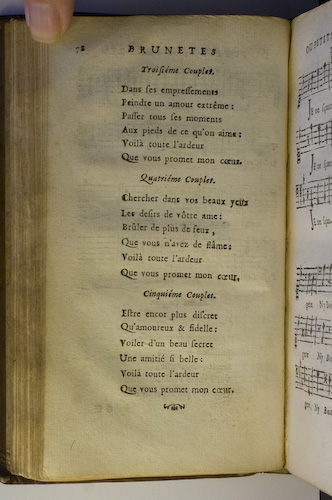 78 BRUNETES
Troisiéme Couplet.
Dans ses empressements
Peindre un amour extrême :
Passer tous ses moments
Aux pieds de ce qu'on aime :
Voilà toute l'ardeur
Que vous promet mon cœur.
Quatriéme Couplet.
Chercher dans vos beaux yeux
Les desirs de vôtre ame :
Brûler de plus de feux,
Que vous n'avez de flâme :
Voilà toute l'ardeur
Que vous promet mon cœur.
Cinquiéme Couplet.
Estre encor plus discret
Qu'amoureux & fidelle :
Voiler d'un beau secret
Une amitié si belle :
Voilà toute l'ardeur
Que vous promet mon cœur.